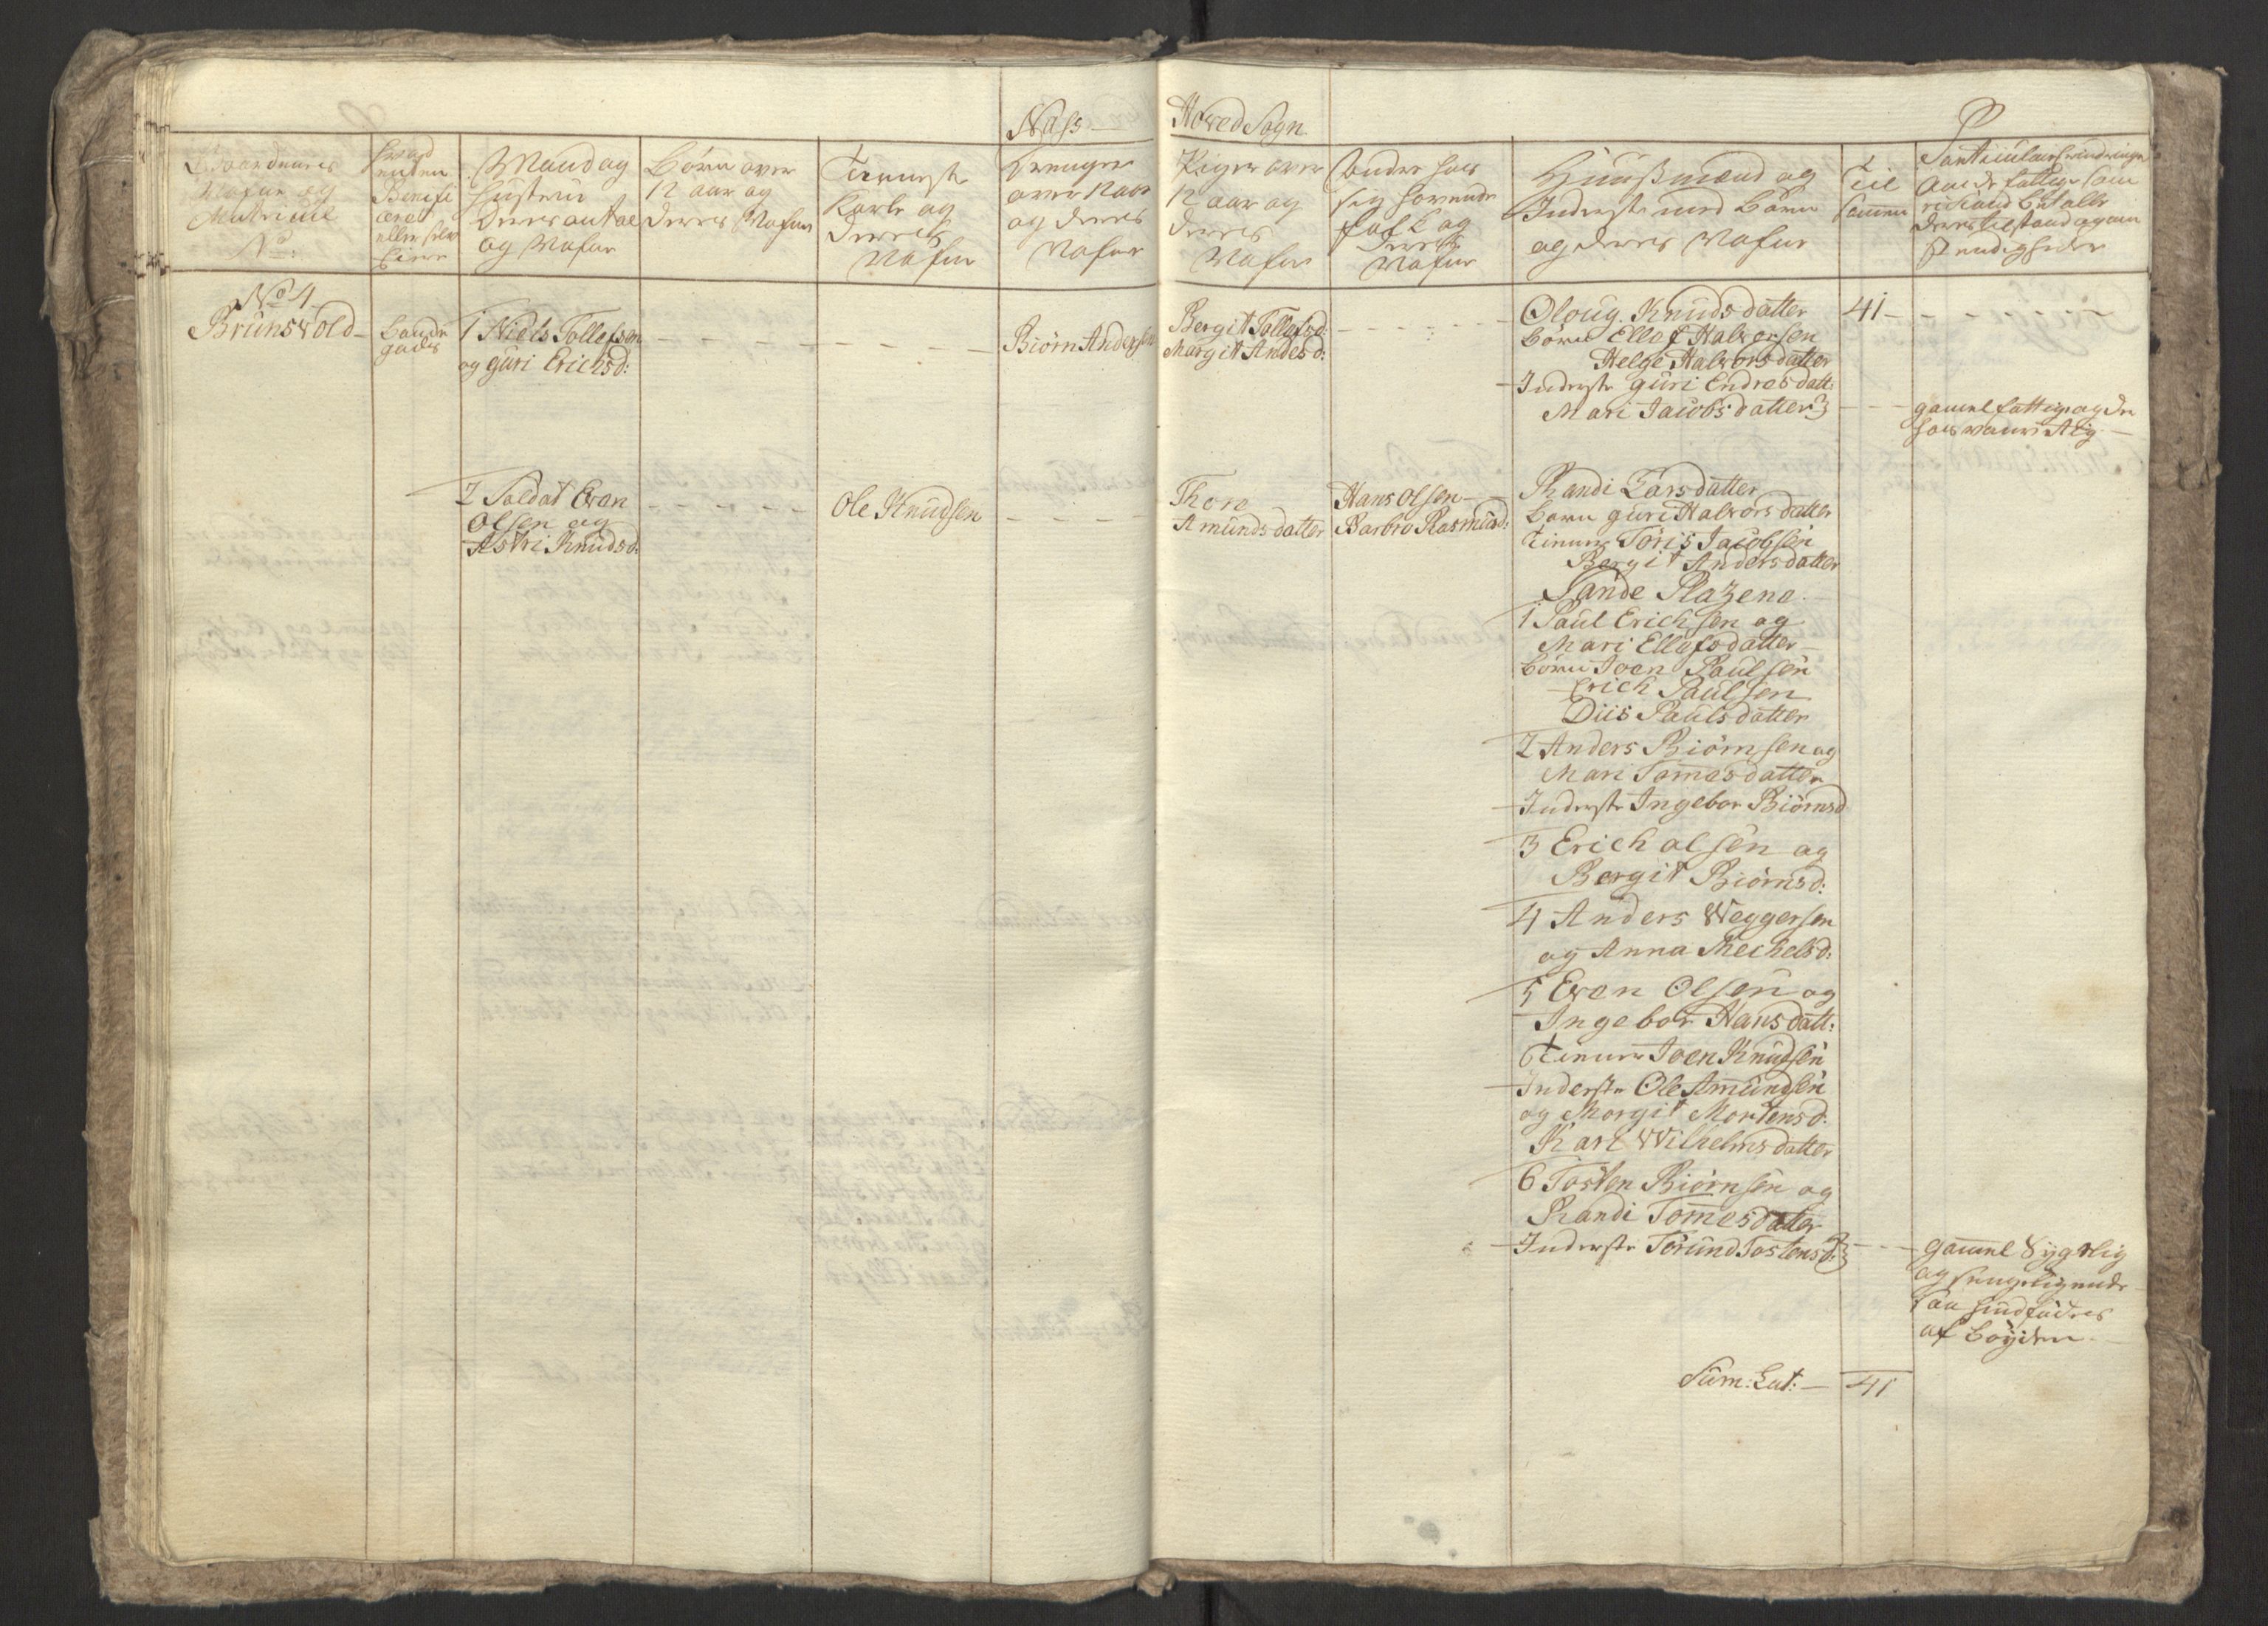 Næss
Hoved Sogn
Gaardenes
Nafne og
Matricul
No:
Mand og
Hustru
deres antal
og Nafne
Børn over
12 aar og
deres Nafne
Tieneste
Karle og
deres
Nafne
Drenger
over 12 aar
og deres
Nafne
Piger over
12 aar og
deres
Nafne
Andre hos
sig havende
folk og
deres
Nafne
Huusmænd og
Inderste med Børn
og deres Nafne
Til
sammen
No 4
Brunsvold
Bonde
gods
1 Niels Tollefsen
og guri Erichsd:
Biørn Andersen
Bergit Tollefsd:
Margit Andersd:
Oloug Knudsdatter
børn Ellef Halvorsen
Helge Halvorsdatter
Inderste guri Endresdatt:
Mari Jacobsdatter
41
gamel fattig og de
2 Soldat Even
Olsen og
Astri Knudsd:
Ole Knudsen
Thore
Amundsdatter
Hans Olsen
Barbro Rasmusd:
Randi Larsdatter
børn guri Halvorsdatter
tiener Tøris Jacobsen
Bergit Andersdatter
Sande Plazene
1 Paul Erichsen og
Mari Ellefsdatter
børn Joen Paulsen
Erich Paulsen
Diis Paulsdatter
2 Anders Biørnsen og
Mari Tomasdatter
Inderste Ingebor Biørnsd
3 Erich olsen og
Bergit Biørnsd:
4 Anders Weggersen
og Anna Mechelsd:
5 Even Olsen og
Ingebor Hansdatt:
tiener Joen Knudsen
Inderste Ole Amundsen
og Morgit Mortensd:
Kari Wilhelmsdatter
6 Tosten Biørnsen og
Randi Tomesdatter
Inderste Torund Tostensd:
gammel Sygelig
og sengeliggende
saa hun fødes
af bøyden
Sum: Lat: — 41